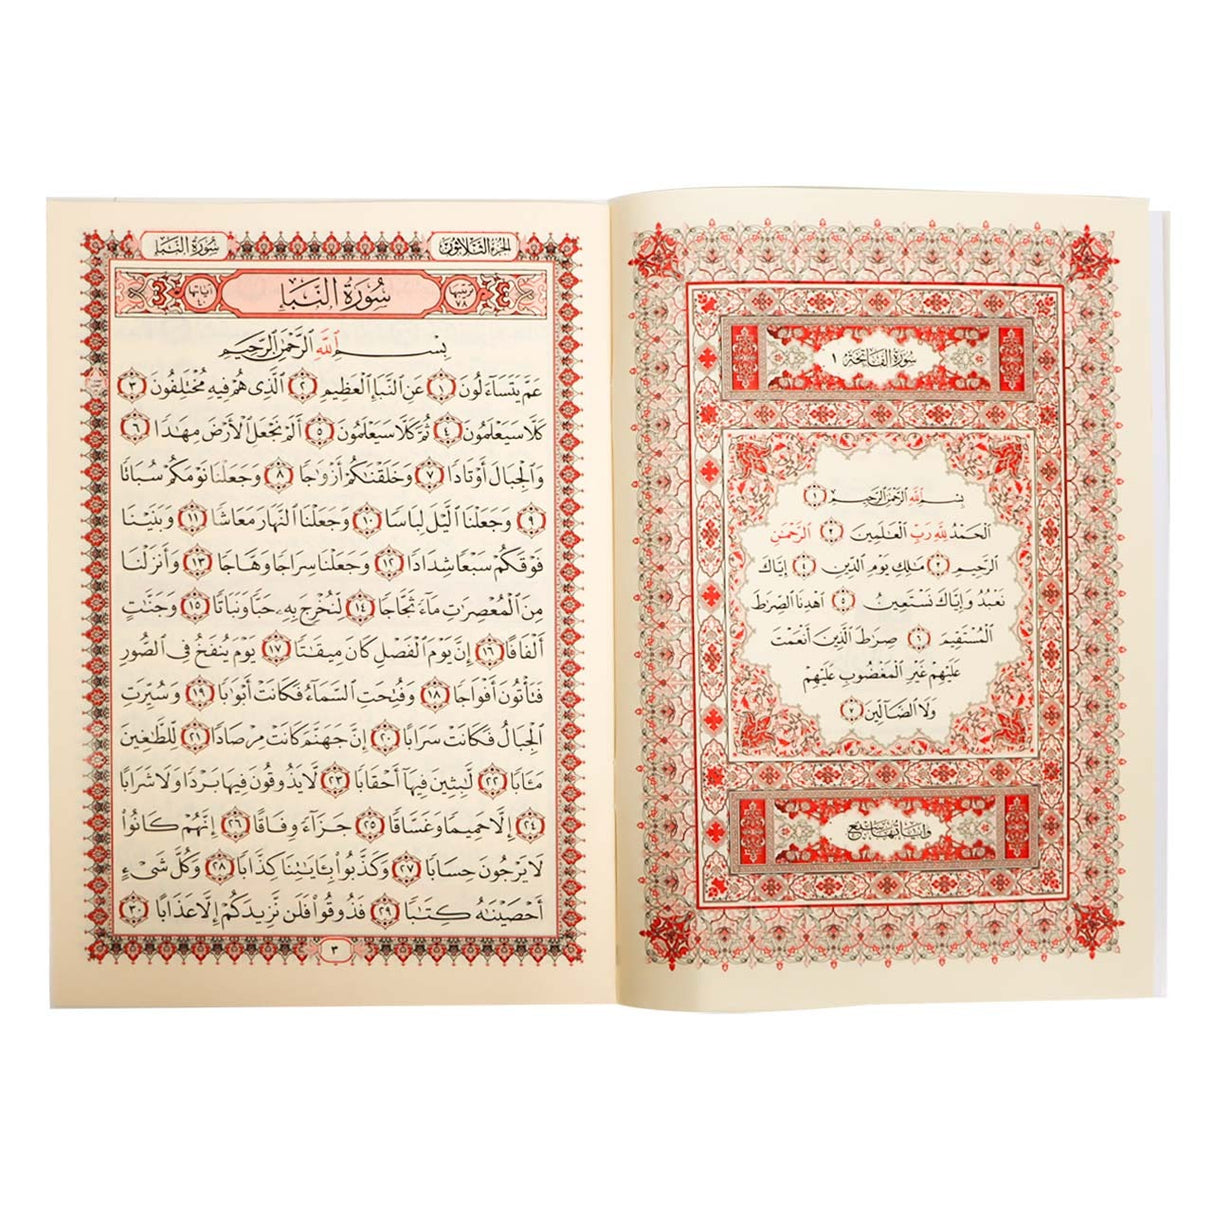 سورة الفاتحة ١
بِسْمِ ٱللَّهِ ٱلرَّحْمَٰنِ ٱلرَّحِيمِ ١
ٱلْحَمْدُ لِلَّهِ رَبِّ ٱلْعَٰلَمِينَ ٢ ٱلرَّحْمَٰنِ
ٱلرَّحِيمِ ٣ مَٰلِكِ يَوْمِ ٱلدِّينِ ٤ إِيَّاكَ
نَعْبُدُ وَإِيَّاكَ نَسْتَعِينُ ٥ ٱهْدِنَا ٱلصِّرَٰطَ
ٱلْمُسْتَقِيمَ ٦ صِرَٰطَ ٱلَّذِينَ أَنْعَمْتَ
عَلَيْهِمْ غَيْرِ ٱلْمَغْضُوبِ عَلَيْهِمْ
وَلَا ٱلضَّآلِّينَ ٧
وآياتها سبع
الجزء الثلاثون
سورة النبإ
ترتيبها ٧٨
سُورَةُ النَّبَإِ
آياتها ٤٠
بِسْمِ ٱللَّهِ ٱلرَّحْمَٰنِ ٱلرَّحِيمِ
عَمَّ يَتَسَآءَلُونَ ١ عَنِ ٱلنَّبَإِ ٱلْعَظِيمِ ٢ ٱلَّذِى هُمْ فِيهِ مُخْتَلِفُونَ ٣
كَلَّا سَيَعْلَمُونَ ٤ ثُمَّ كَلَّا سَيَعْلَمُونَ ٥ أَلَمْ نَجْعَلِ ٱلْأَرْضَ مِهَٰدًا ٦
وَٱلْجِبَالَ أَوْتَادًا ٧ وَخَلَقْنَٰكُمْ أَزْوَٰجًا ٨ وَجَعَلْنَا نَوْمَكُمْ سُبَاتًا
٩ وَجَعَلْنَا ٱلَّيْلَ لِبَاسًا ١٠ وَجَعَلْنَا ٱلنَّهَارَ مَعَاشًا ١١ وَبَنَيْنَا
فَوْقَكُمْ سَبْعًا شِدَادًا ١٢ وَجَعَلْنَا سِرَاجًا وَهَّاجًا ١٣ وَأَنزَلْنَا
مِنَ ٱلْمُعْصِرَٰتِ مَآءً ثَجَّاجًا ١٤ لِّنُخْرِجَ بِهِۦ حَبًّا وَنَبَاتًا ١٥ وَجَنَّٰتٍ
أَلْفَافًا ١٦ إِنَّ يَوْمَ ٱلْفَصْلِ كَانَ مِيقَٰتًا ١٧ يَوْمَ يُنفَخُ فِى ٱلصُّورِ
فَتَأْتُونَ أَفْوَاجًا ١٨ وَفُتِحَتِ ٱلسَّمَآءُ فَكَانَتْ أَبْوَٰبًا ١٩ وَسُيِّرَتِ
ٱلْجِبَالُ فَكَانَتْ سَرَابًا ٢٠ إِنَّ جَهَنَّمَ كَانَتْ مِرْصَادًا ٢١ لِّلطَّٰغِينَ
مَـَٔابًا ٢٢ لَّٰبِثِينَ فِيهَآ أَحْقَابًا ٢٣ لَّا يَذُوقُونَ فِيهَا بَرْدًا وَلَا شَرَابًا
٢٤ إِلَّا حَمِيمًا وَغَسَّاقًا ٢٥ جَزَآءً وِفَاقًا ٢٦ إِنَّهُمْ كَانُوا۟
لَا يَرْجُونَ حِسَابًا ٢٧ وَكَذَّبُوا۟ بِـَٔايَٰتِنَا كِذَّابًا ٢٨ وَكُلَّ شَىْءٍ
أَحْصَيْنَٰهُ كِتَٰبًا ٢٩ فَذُوقُوا۟ فَلَن نَّزِيدَكُمْ إِلَّا عَذَابًا ٣٠
٣